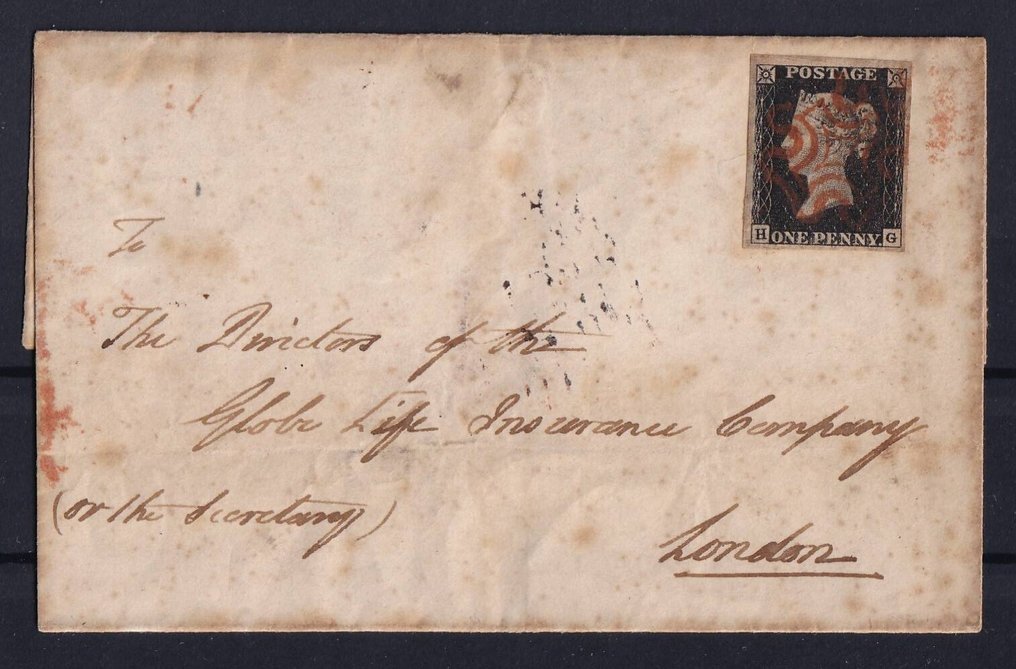 POSTAGE
H ONE PENNY G
To
The Directors of the
Globe Life Insurance Company
(or the Secretary)
London